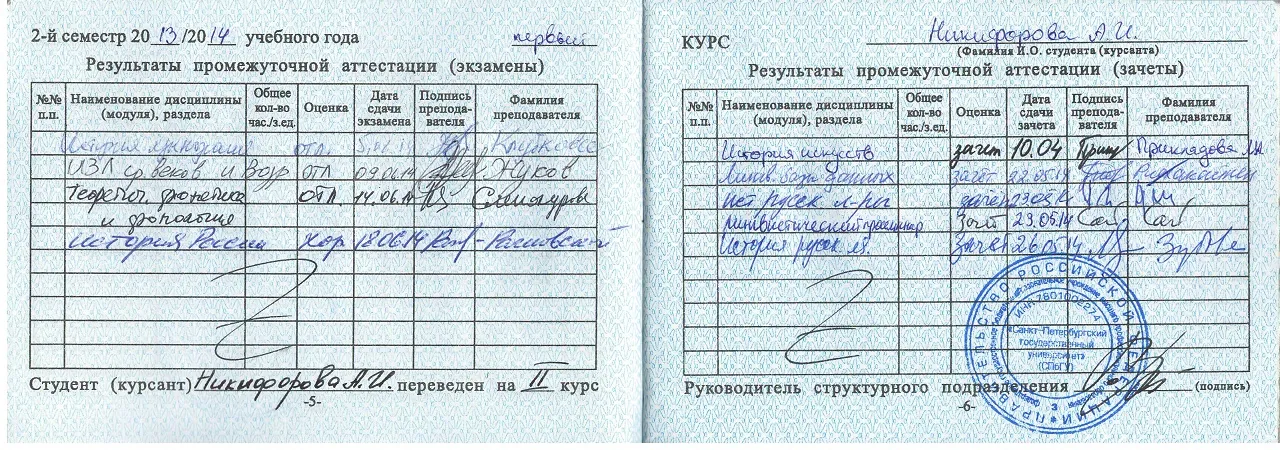 2-й семестр 2013/2014 учебного года первый
Результаты промежуточной аттестации (экзамены)
№№ п.п. Наименование дисциплины (модуля), раздела Общее кол-во час./з.ед. Оценка Дата сдачи экзамена Подпись препода-вателя Фамилия преподавателя
История отл.
ИЗЛ ср. веков и Возр отл 09.06.14 Жуков
Теоретич. фонетика отл. 14.06.14
и фонология
История России хор 18.06.14
Студент (курсант) Никифорова А.И. переведен на II курс
-5-
КУРС Никифорова А.И.
(Фамилия И.О. студента (курсанта)
Результаты промежуточной аттестации (зачеты)
№№ п.п. Наименование дисциплины (модуля), раздела Общее кол-во час./з.ед. Оценка Дата сдачи зачета Подпись препода-вателя Фамилия преподавателя
История искусств зачет 10.04
Лингв. базы данных зачёт 22.05.14
ист русск л-ры зачёт 23.05.14
Лингвистический зачёт 23.05.14
История русск яз. Зачёт 26.05.14
ПРАВИТЕЛЬСТВО РОССИЙСКОЙ ФЕДЕРАЦИИ
ИНН 7801002274
«Санкт-Петербургский
государственный
университет»
(СПбГУ)
3
Руководитель структурного подразделения (подпись)
-6-